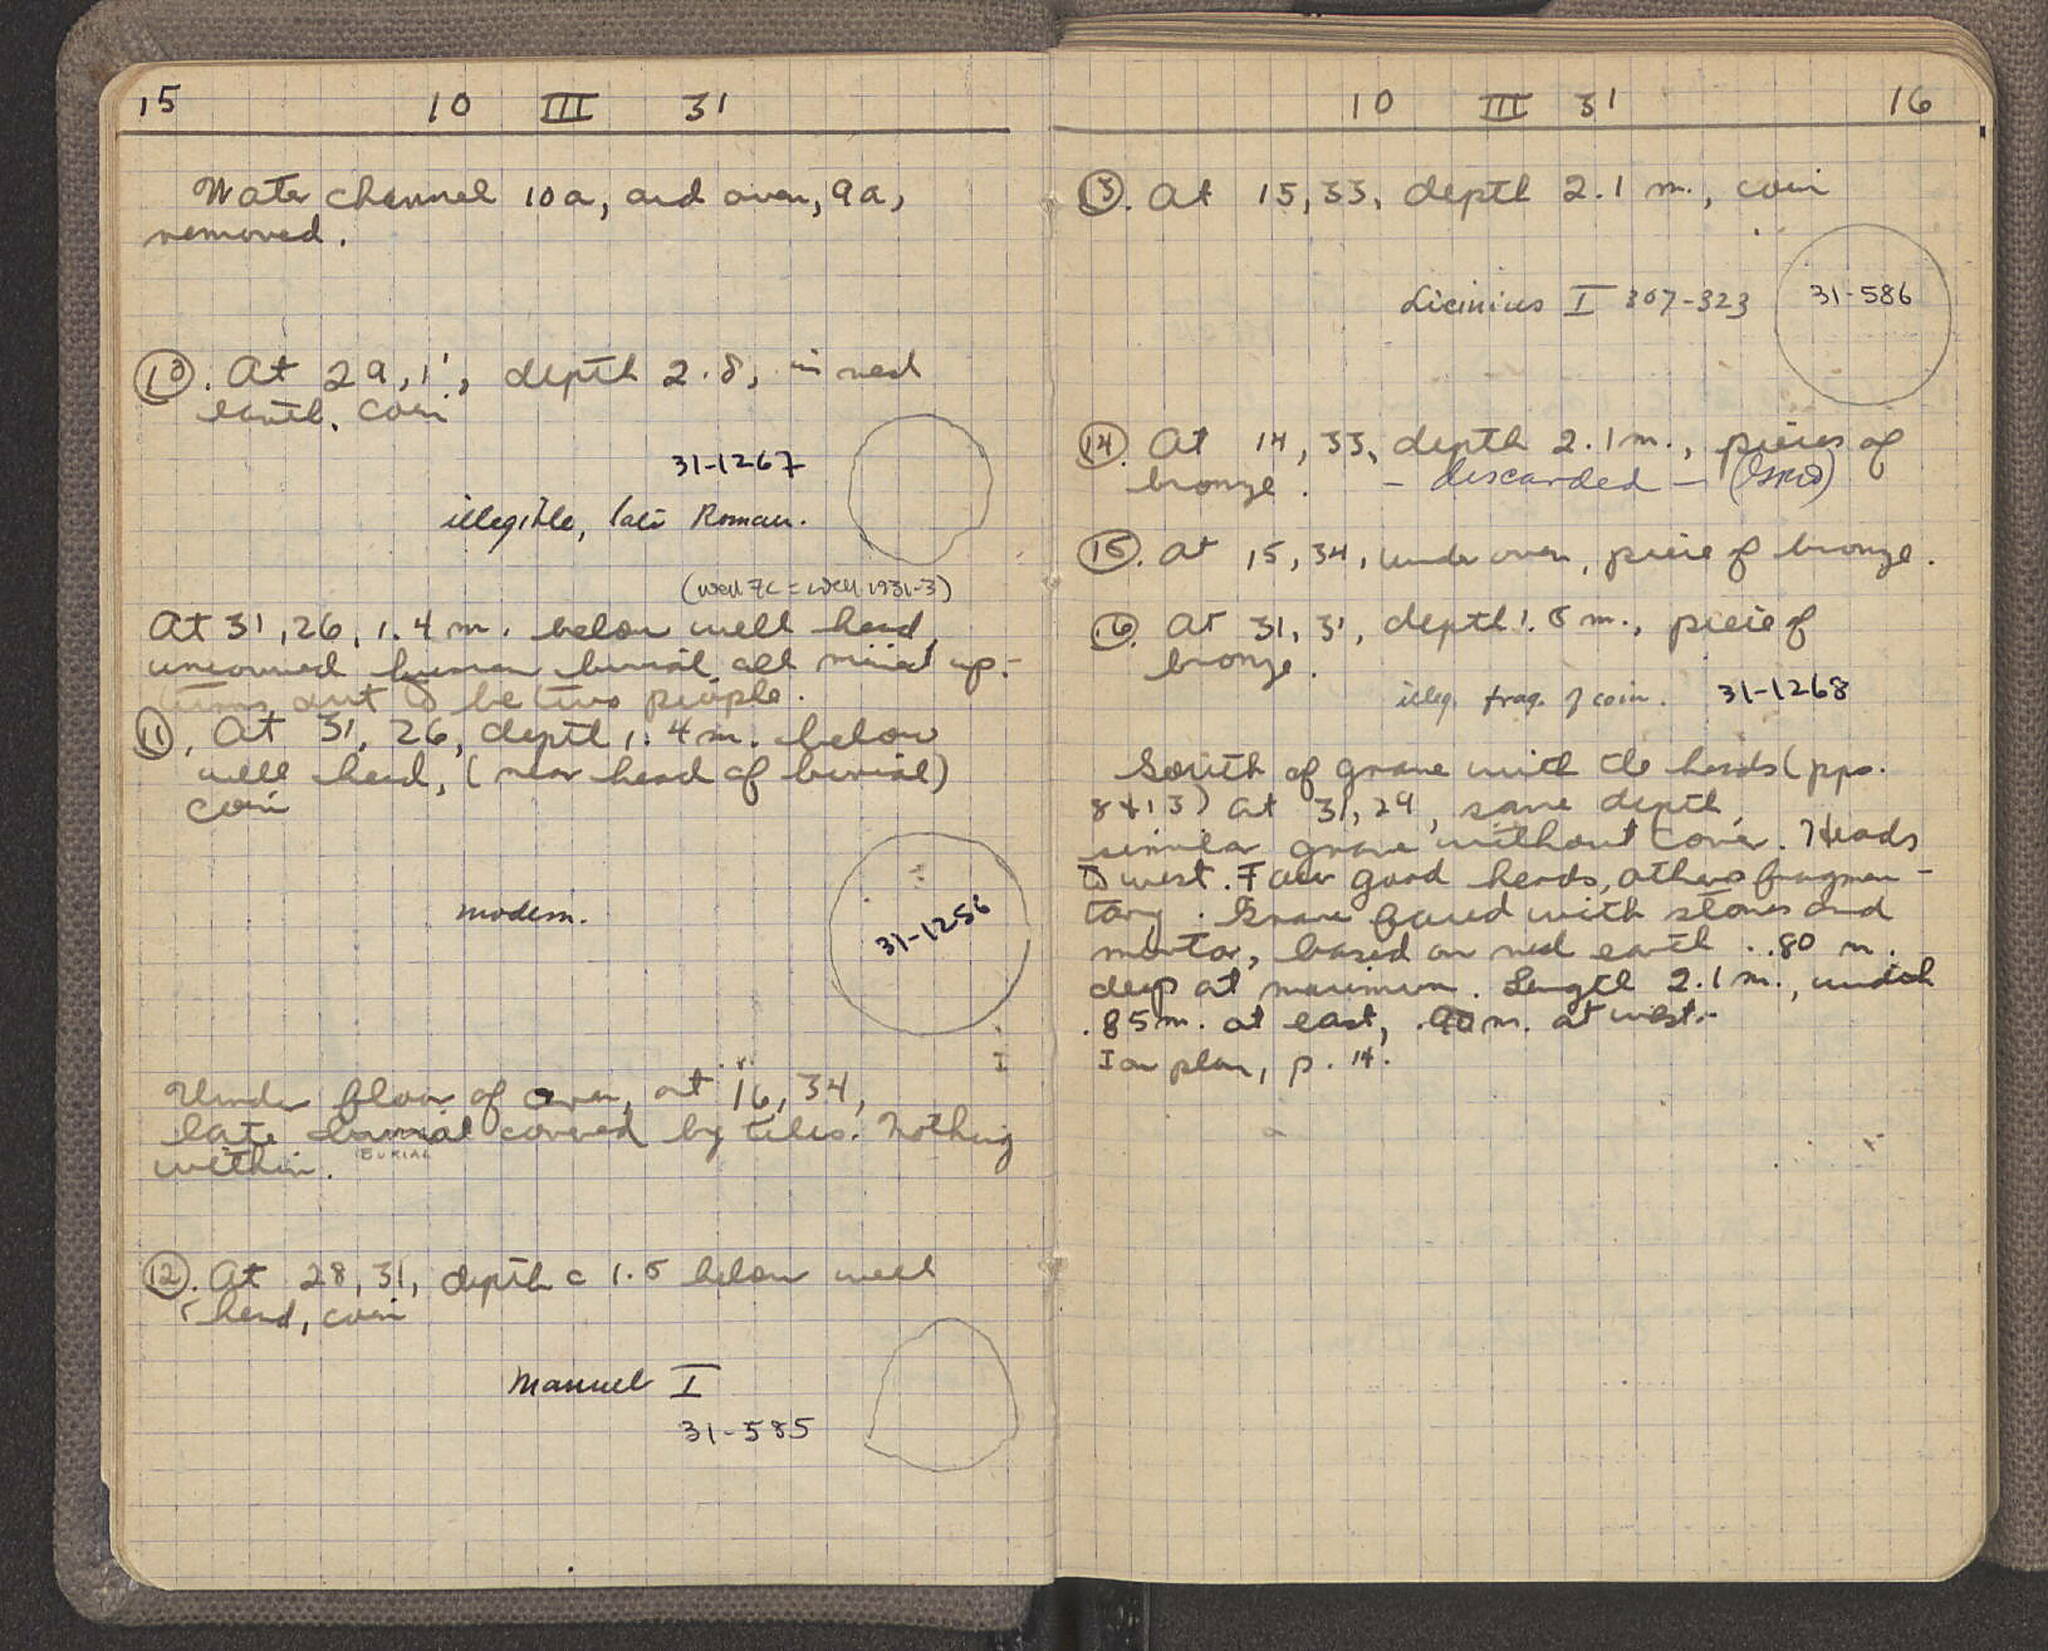 15 10 III 31
Water channel 10a, and oven, 9a,
removed.
10. At 29, 1', depth 2.8, in red
earth, coin
31-1267
illegible, late Roman.
(well 7c = well 1931-3)
At 31, 26, 1.4 m. below well head,
uncovered human burial all mixed up.-
turns out to be two people.
11. At 31, 26, depth 1.4 m. below
well head, (near head of burial)
coin
modern.
31-1256
I
Under floor of oven, at 16, 34,
late burial covered by tiles. Nothing
BURIAL
within.
12. At 28, 31, depth c 1.5 below well
head, coin
Manuel I
31-585
10 III 31 16
13. At 15, 33, depth 2.1 m., coin
Licinius I 307-323
31-586
14. At 14, 33, depth 2.1 m., pieces of
bronze. - discarded -
15. At 15, 34, under oven, piece of bronze.
16. At 31, 31, depth 1.5 m., piece of
bronze.
illeg. frag. of coin. 31-1268
South of grave with the heads (pps.
8 + 13) at 31, 29, same depth,
similar grave without cover. Heads
to west. Four good heads, others fragmen-
tary. Grave faced with stones and
mortar, based on red earth. .80 m.
deep at maximum. Length 2.1 m., width
.85 m. at east, .90 m. at west.-
I on plan, p. 14.